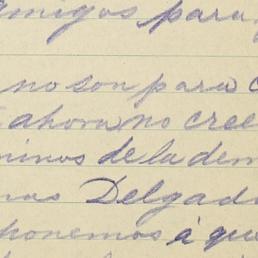 amigos para
no son para
ahora no cree
minos de la dem
mas Delgad
ponemos á que